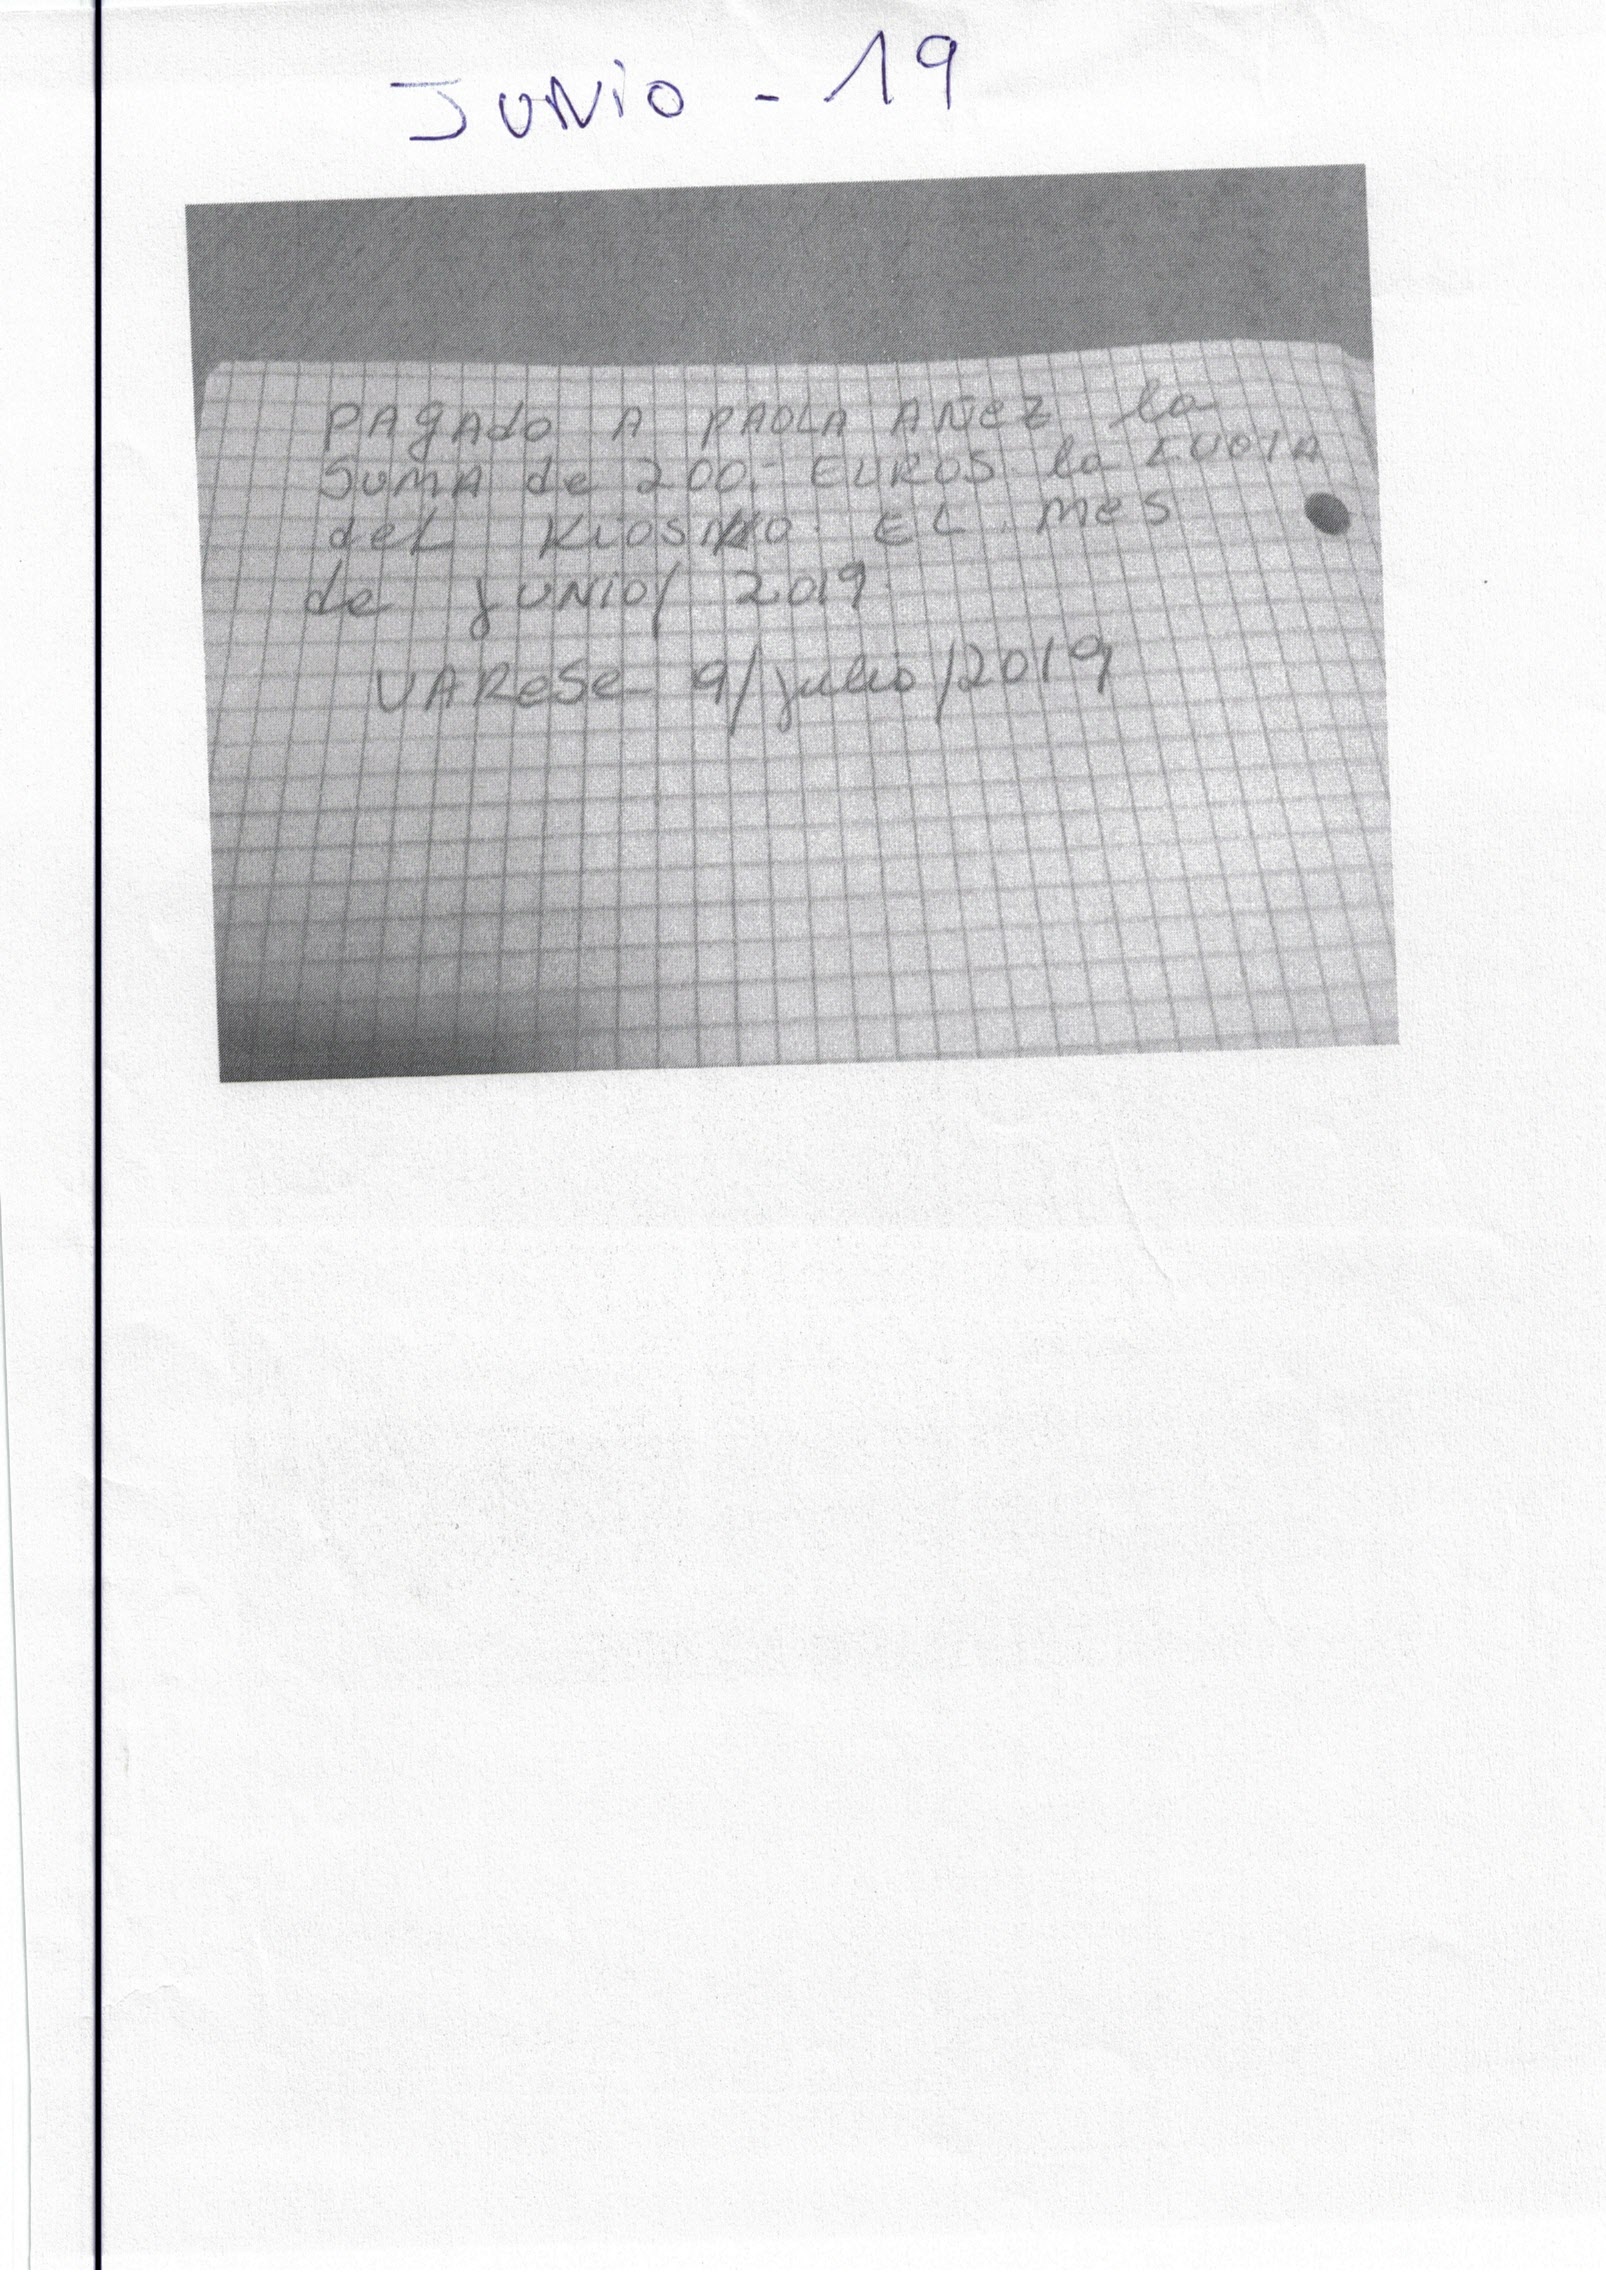 JUNIO - 19
PAgAdo A PAOLA AÑEZ la
SUMA de 200.- EUROS la CUOTA
del KIOSKO. EL MES
de JUNIO/ 2019.
VARESE 9/julio/2019